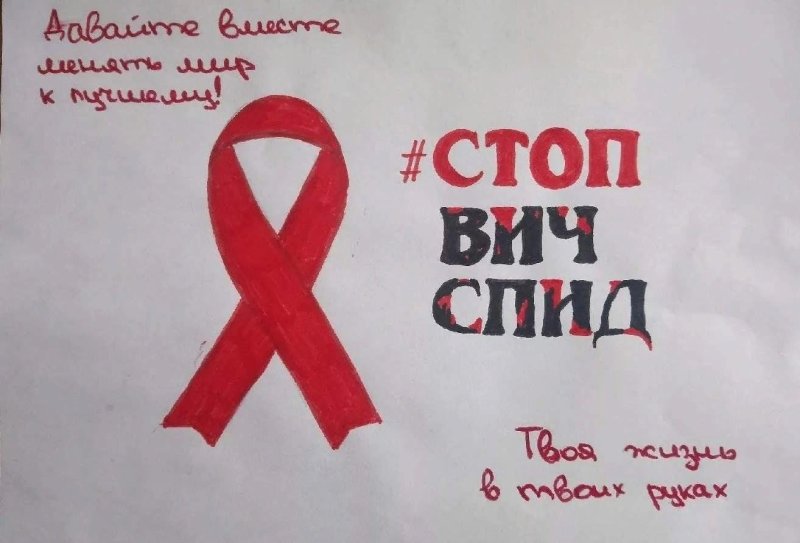 Давайте вместе
менять мир
к лучшему!
#СТОП
ВИЧ
СПИД
Твоя жизнь
в твоих руках